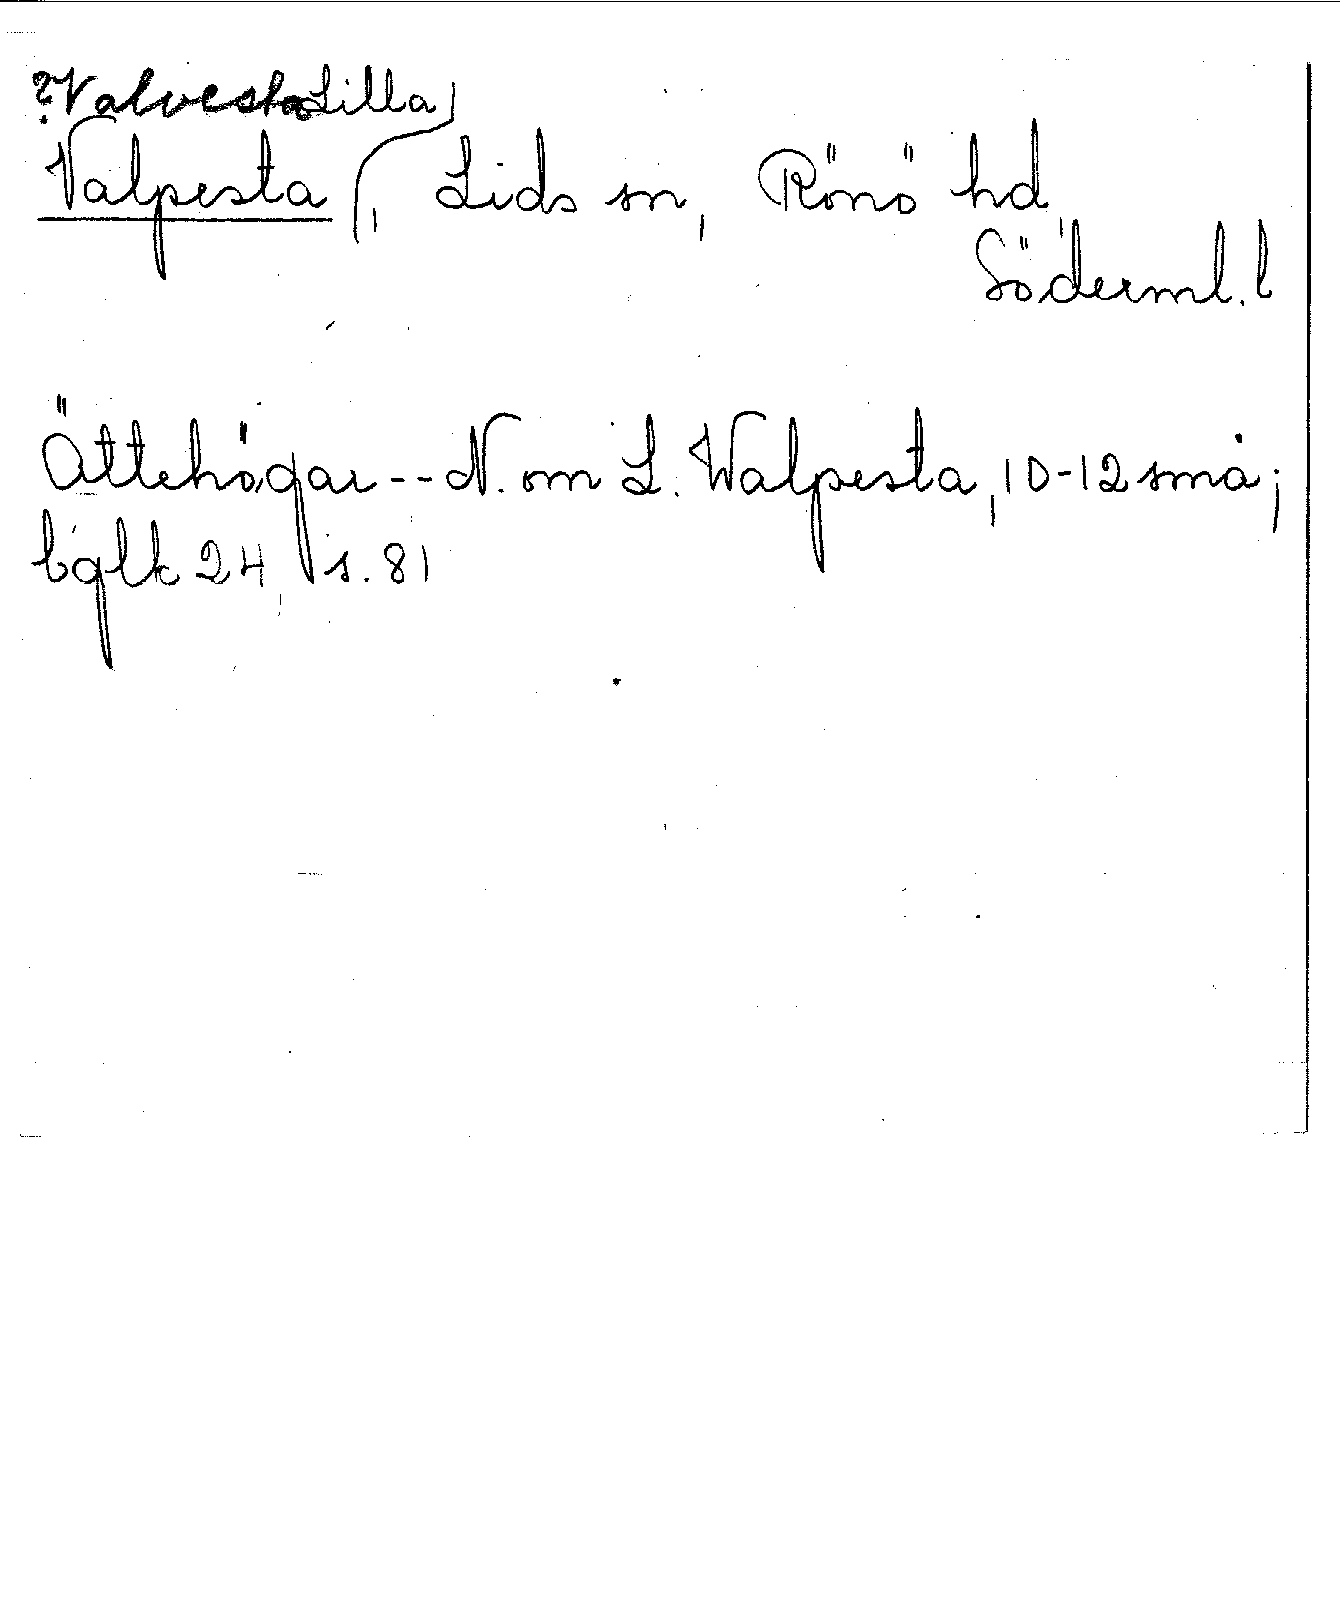 ?Valvesta Lilla
Valpesta, Lids sn, Rönö hd,
Söderml. l
Ättehögar--N. om L. Walpesta, 10-12 små;
bglk 24, s. 81